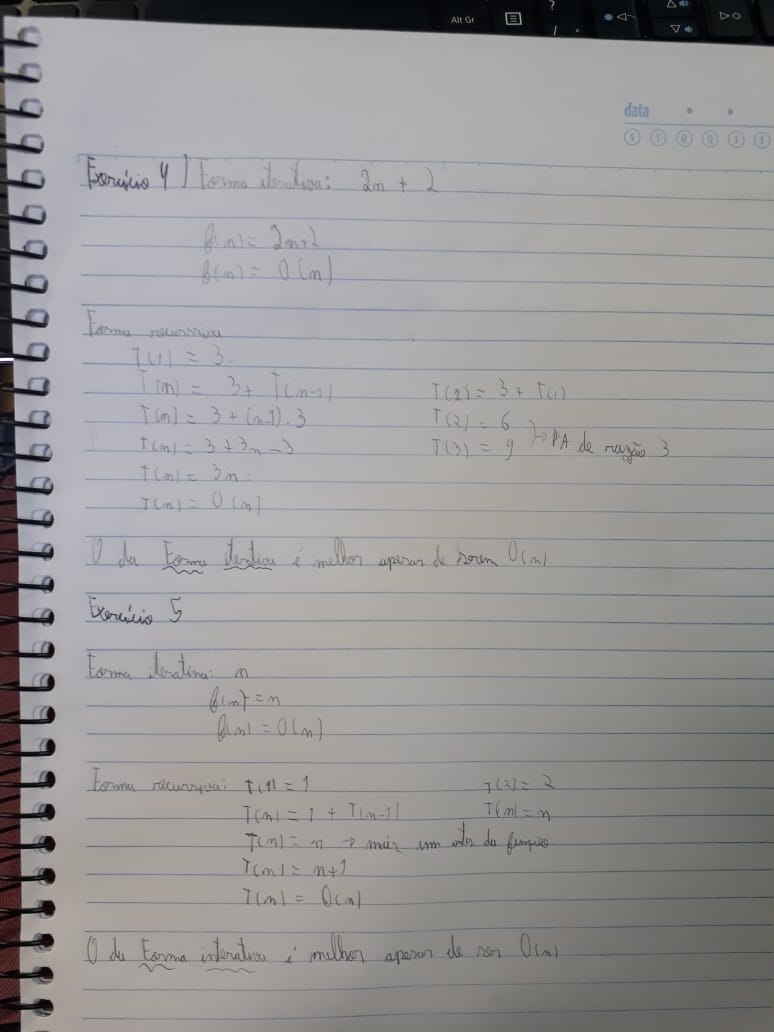 Alt Gr
?
/
data
S T Q Q S S
Exercício 4) Forma iterativa: 2n + 2
f(n) = 2n+2
f(n) = O(n)
Forma recursiva
T(1) = 3
T(n) = 3 + T(n-1) T(2) = 3 + T(1)
T(n) = 3 + (n-1).3 T(2) = 6
T(n) = 3 + 3n - 3 T(3) = 9 } → PA de razão 3
T(n) = 3n
T(n) = O(n)
O da Forma iterativa é melhor apesar de serem O(n)
Exercício 5
Forma iterativa: n
f(n) = n
f(n) = O(n)
Forma recursiva: T(1) = 1 T(2) = 2
T(n) = 1 + T(n-1) T(n) = n
T(n) = n → mais um antes da função
T(n) = n+1
T(n) = O(n)
O da Forma interativa é melhor apesar de ser O(n)